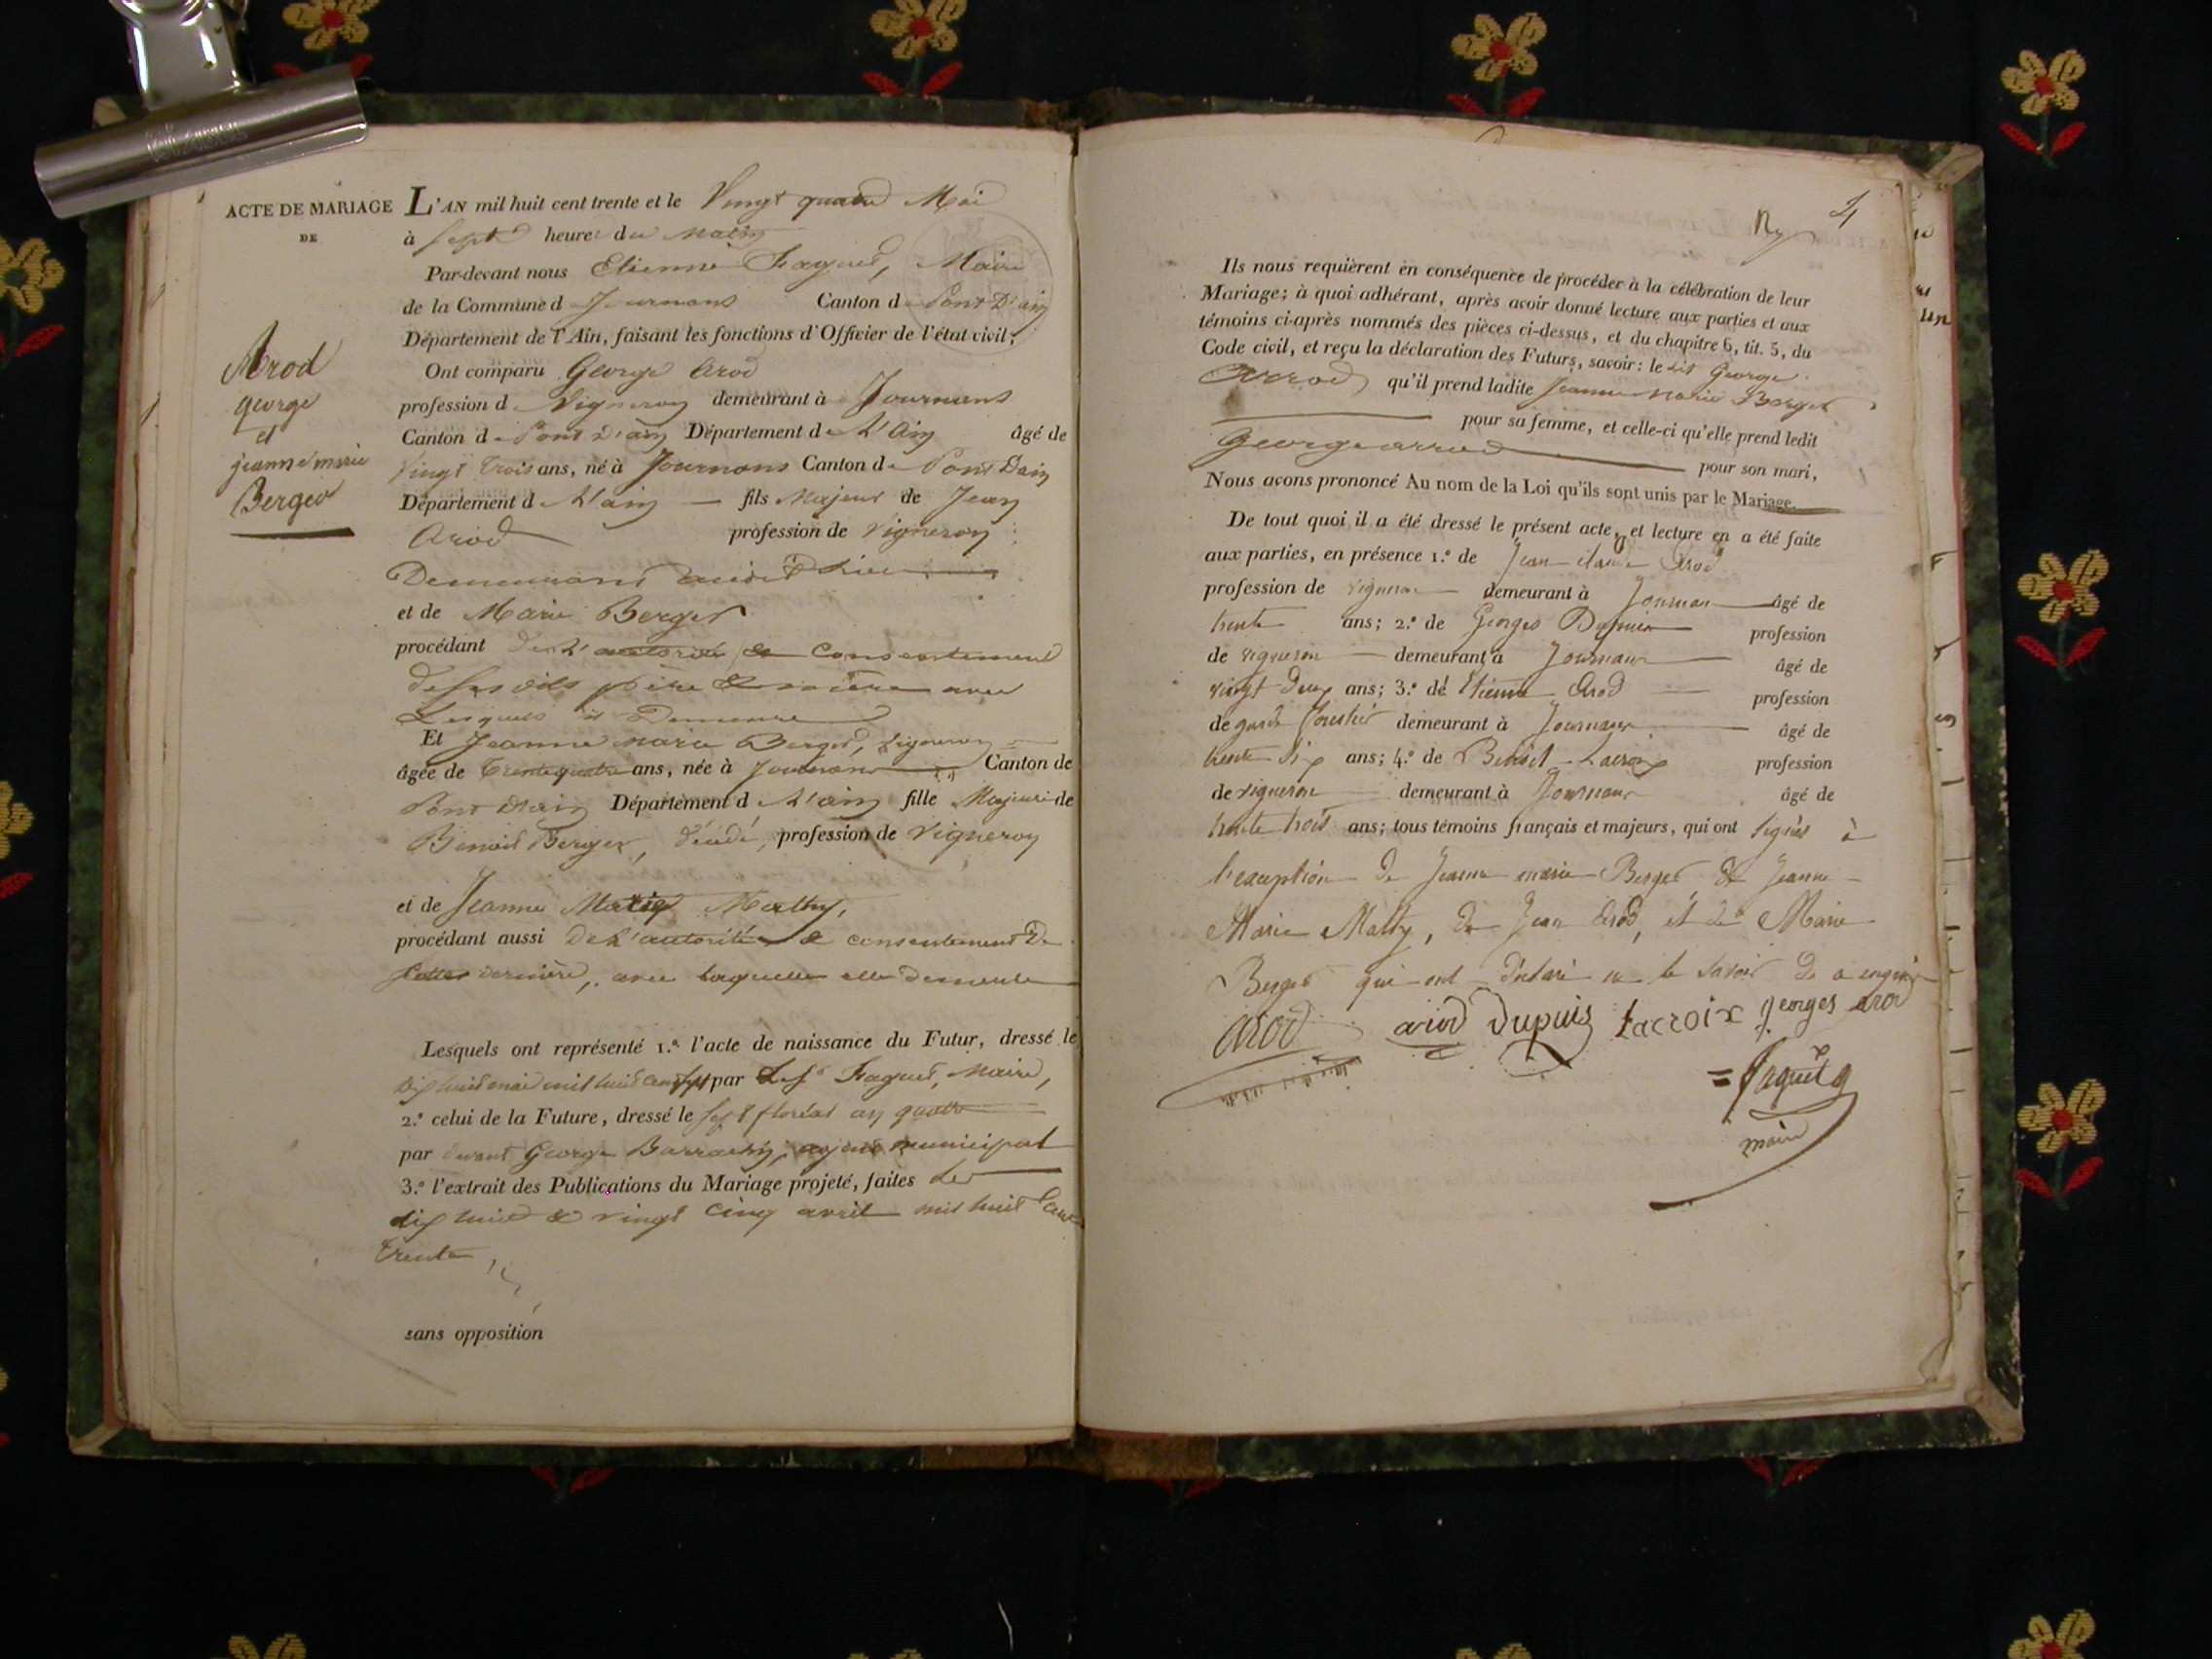 ACTE DE MARIAGE
DE
Arod
george
et
jeanne marie
Berger
L'AN mil huit cent trente et le Vingt quatre Mai
à sept heures du matin
Par-devant nous Etienne Faguet, Maire
de la Commune de Journans Canton de Pont D'ain
Département de l'Ain, faisant les fonctions d'Officier de l'état civil;
Ont comparu George Arod
profession de Vigneron demeurant à Journans
Canton de Pont D'ain Département de L'Ain âgé de
vingt trois ans, né à Journans Canton de Pont Dain
Département de L'ain fils Majeur de Jean
Arod profession de Vigneron
Demeurant audit Lieu
et de Marie Berger
procédant de L'autorité & Consentement
de ses dits père & mère avec
Lesquels il Demeure
Et Jeanne marie Berger, vigneron
âgée de trente quatre ans, née à Journans Canton de
Pont d'ain Département de L'ain fille Majeure de
Benoit Berger, décédé, profession de Vigneron
et de Jeanne Marie Mathy,
procédant aussi De L'autorité & consentement De
cette dernière, avec laquelle elle demeure
Lesquels ont représenté 1.º l'acte de naissance du Futur, dressé le
dix huit mai mil huit cent sept par Faguet, Maire,
2.º celui de la Future, dressé le sept floréal an quatre
par devant George municipal
3.º l'extrait des Publications du Mariage projeté, faites Les
dix huit & vingt cinq avril mil huit Cent
trente,
sans opposition
4
Ils nous requièrent en conséquence de procéder à la célébration de leur
Mariage; à quoi adhérant, après avoir donné lecture aux parties et aux
témoins ci-après nommés des pièces ci-dessus, et du chapitre 6, tit. 5, du
Code civil, et reçu la déclaration des Futurs, savoir: le dit George
Arrod qu'il prend ladite Jeanne Marie Berger
pour sa femme, et celle-ci qu'elle prend ledit
George arrod pour son mari,
Nous avons prononcé Au nom de la Loi qu'ils sont unis par le Mariage.
De tout quoi il a été dressé le présent acte, et lecture en a été faite
aux parties, en présence 1.º de Jean claude Arod
profession de vigneron demeurant à Journans âgé de
trente ans; 2.º de Georges Dupuis profession
de vigneron demeurant à Journans âgé de
vingt deux ans; 3.º de Etienne Arod profession
de garde forestier demeurant à Journans âgé de
trente six ans; 4.º de Benoit Lacroix profession
de vigneron demeurant à Journans âgé de
trente trois ans; tous témoins français et majeurs, qui ont signés à
l'exception de Jeanne marie Berger de Jeanne
Marie Mathy, de Jean Arod, et de Marie
Berger qui ont déclaré ne le savoir de ce enquis
arod arod Dupuis Lacroix georges arod
Faguet
maire